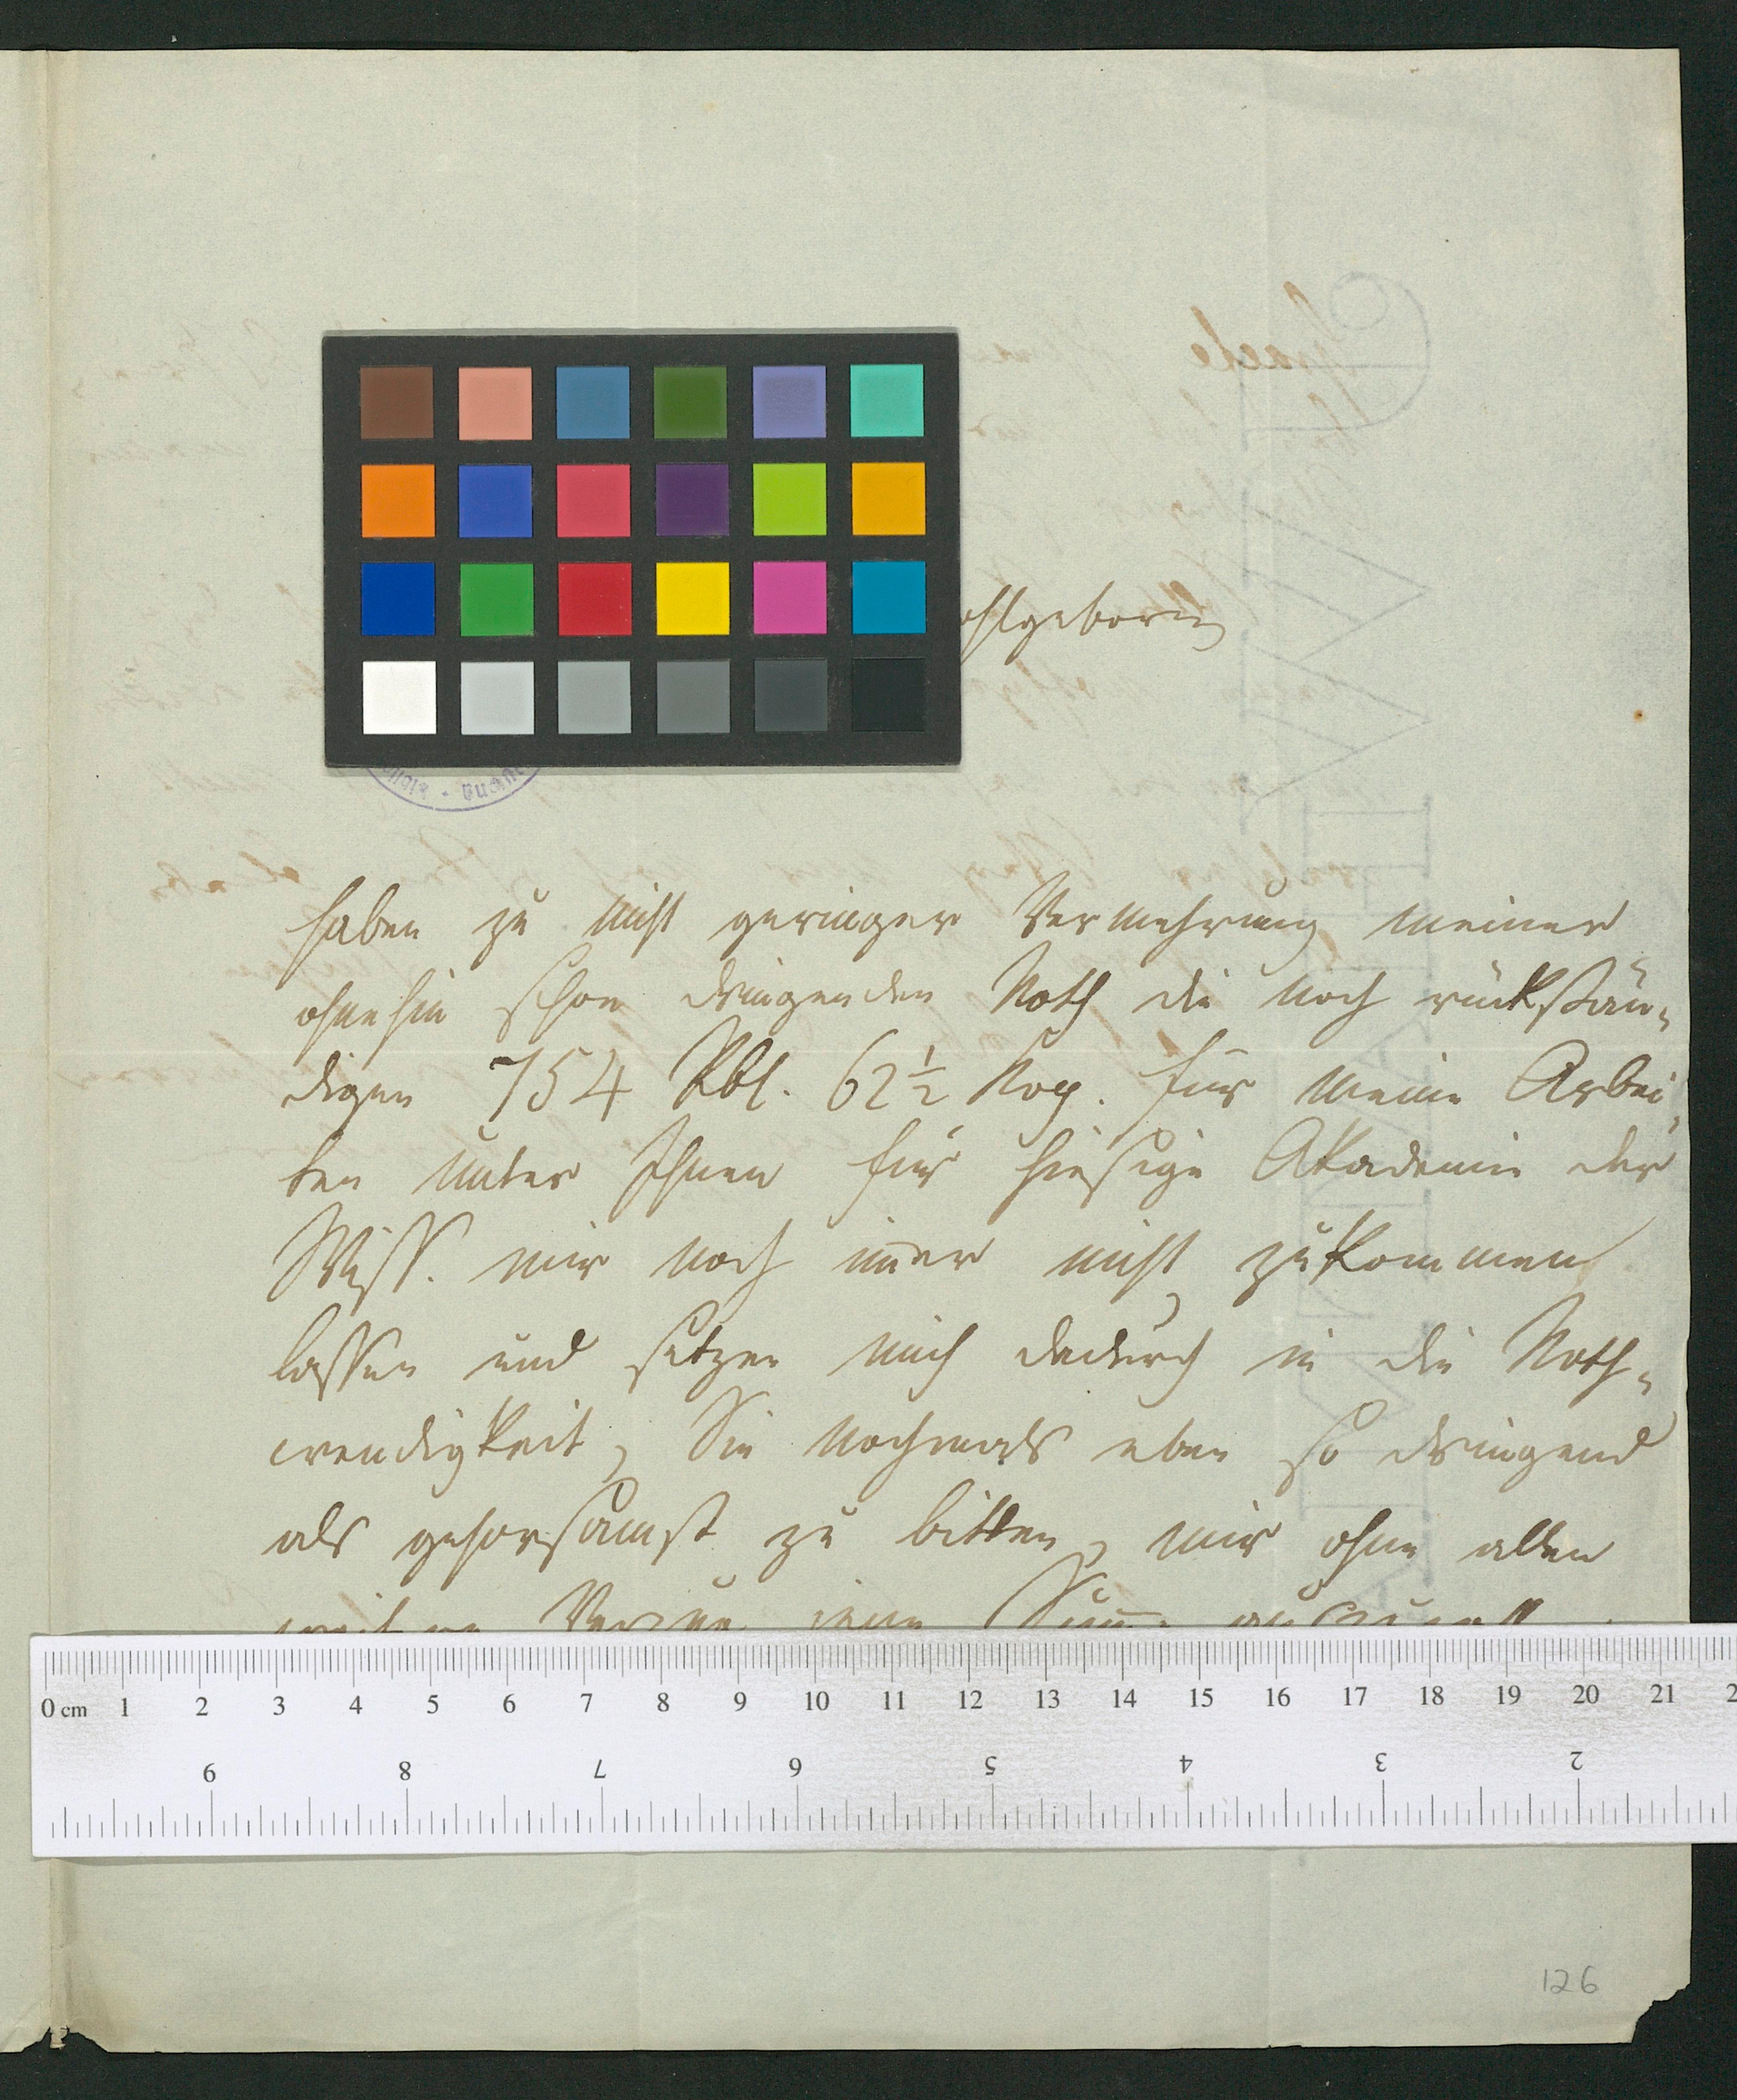 ohlgeboren
haben zu nicht geringer Vermehrung meiner
ohnehin schon dringenden Noth die noch rückstän-
digen 754 Rbl. 62½ Kop. für meine Arbei-
ten unter Ihnen für hiesige Akademie der
Wiss. mir noch im̅er nicht zukommen
lassen und setzen mich dadurch in die Noth-
wendigkeit, Sie nochmals eben so dringend
als gehorsamst zu bitten, mir ohne allen
0 cm 1 2 3 4 5 6 7 8 9 10 11 12 13 14 15 16 17 18 19 20 21
9 8 7 6 5 4 3 2
126